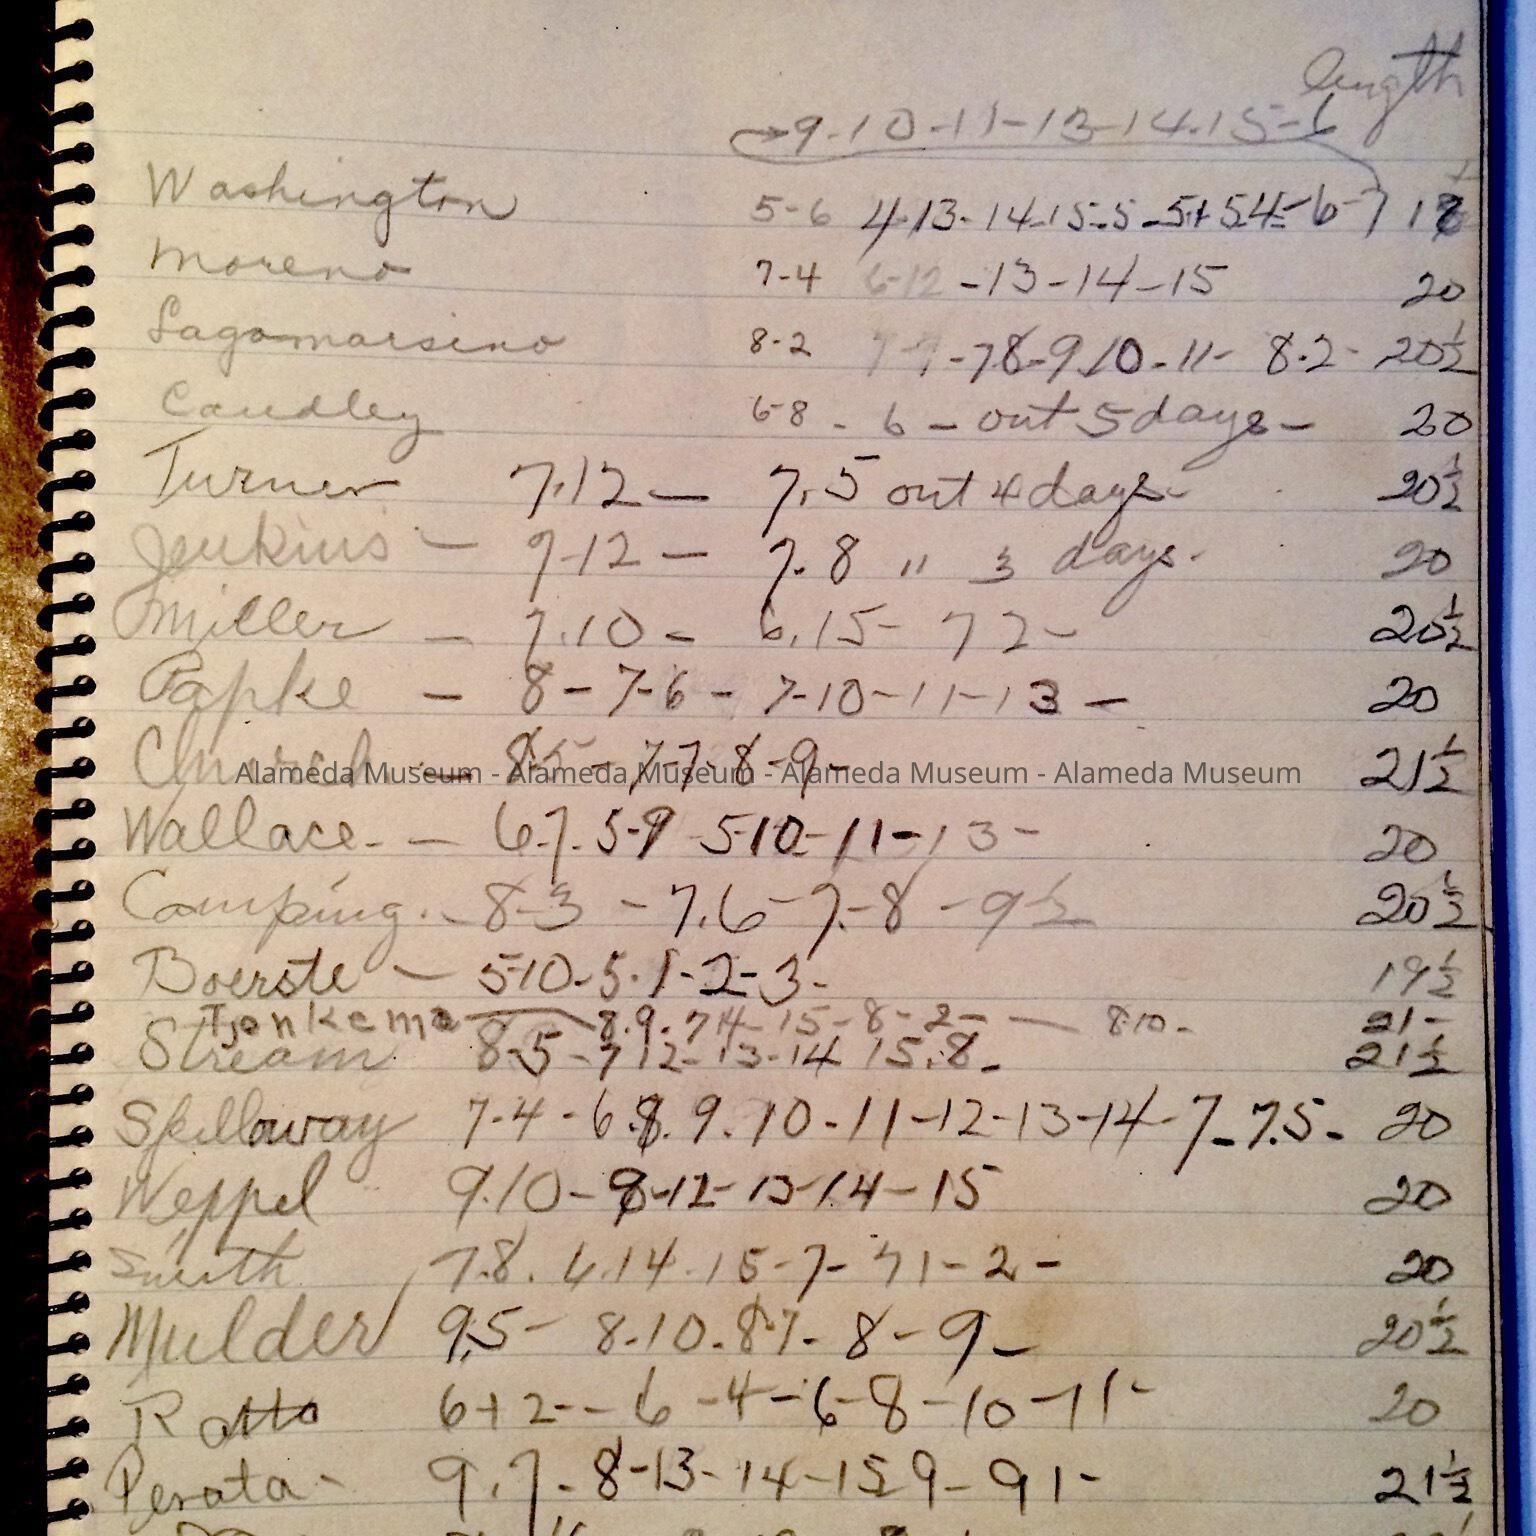 length
→9-10-11-13-14-15-6
Washington 5-6 4-13-14-15-5-5+54-6-7
Moreno 7-4 6-12 -13-14-15 20
Lagomarsino 8-2 -78-9.10-11- 8.2- 20½
Caudley 6-8 - 6 - out 5 days - 20
Turner 7.12 — 7.5 out 4 days- 20½
Jenkins — 9-12 — 7.8 " 3 days- 20
Miller — 7.10 - 6.15- 72- 20½
Papke — 8-7-6 - 7-10-11-13 - 20
Church — 85-77-8-9- 21½
Alameda Museum - Alameda Museum - Alameda Museum - Alameda Museum
Wallace - — 6-7.5-9 5-10-11-13- 20
Camping. - 8-3 - 7.6-7.-8-9½ 20½
Boerste — 5-10-5.1-2-3- 19½
Tjenkema — 8.9-74-15-8-2- — 8.10- 21-
Stream 8-5-712-13-14 15.8- 21½
Spillaway 7-4-6.8.9.10-11-12-13-14-7-7.5- 20
Weppel 9.10-8-12-13-14-15 20
Smith 7.8. 6.14.15-7-71-2- 20
Mulder 9.5- 8.10.87-8-9- 20½
Ratto 6+2--6-4-6-8-10-11- 20
Perata- 9.7-8-13-14-15 9-91- 21½